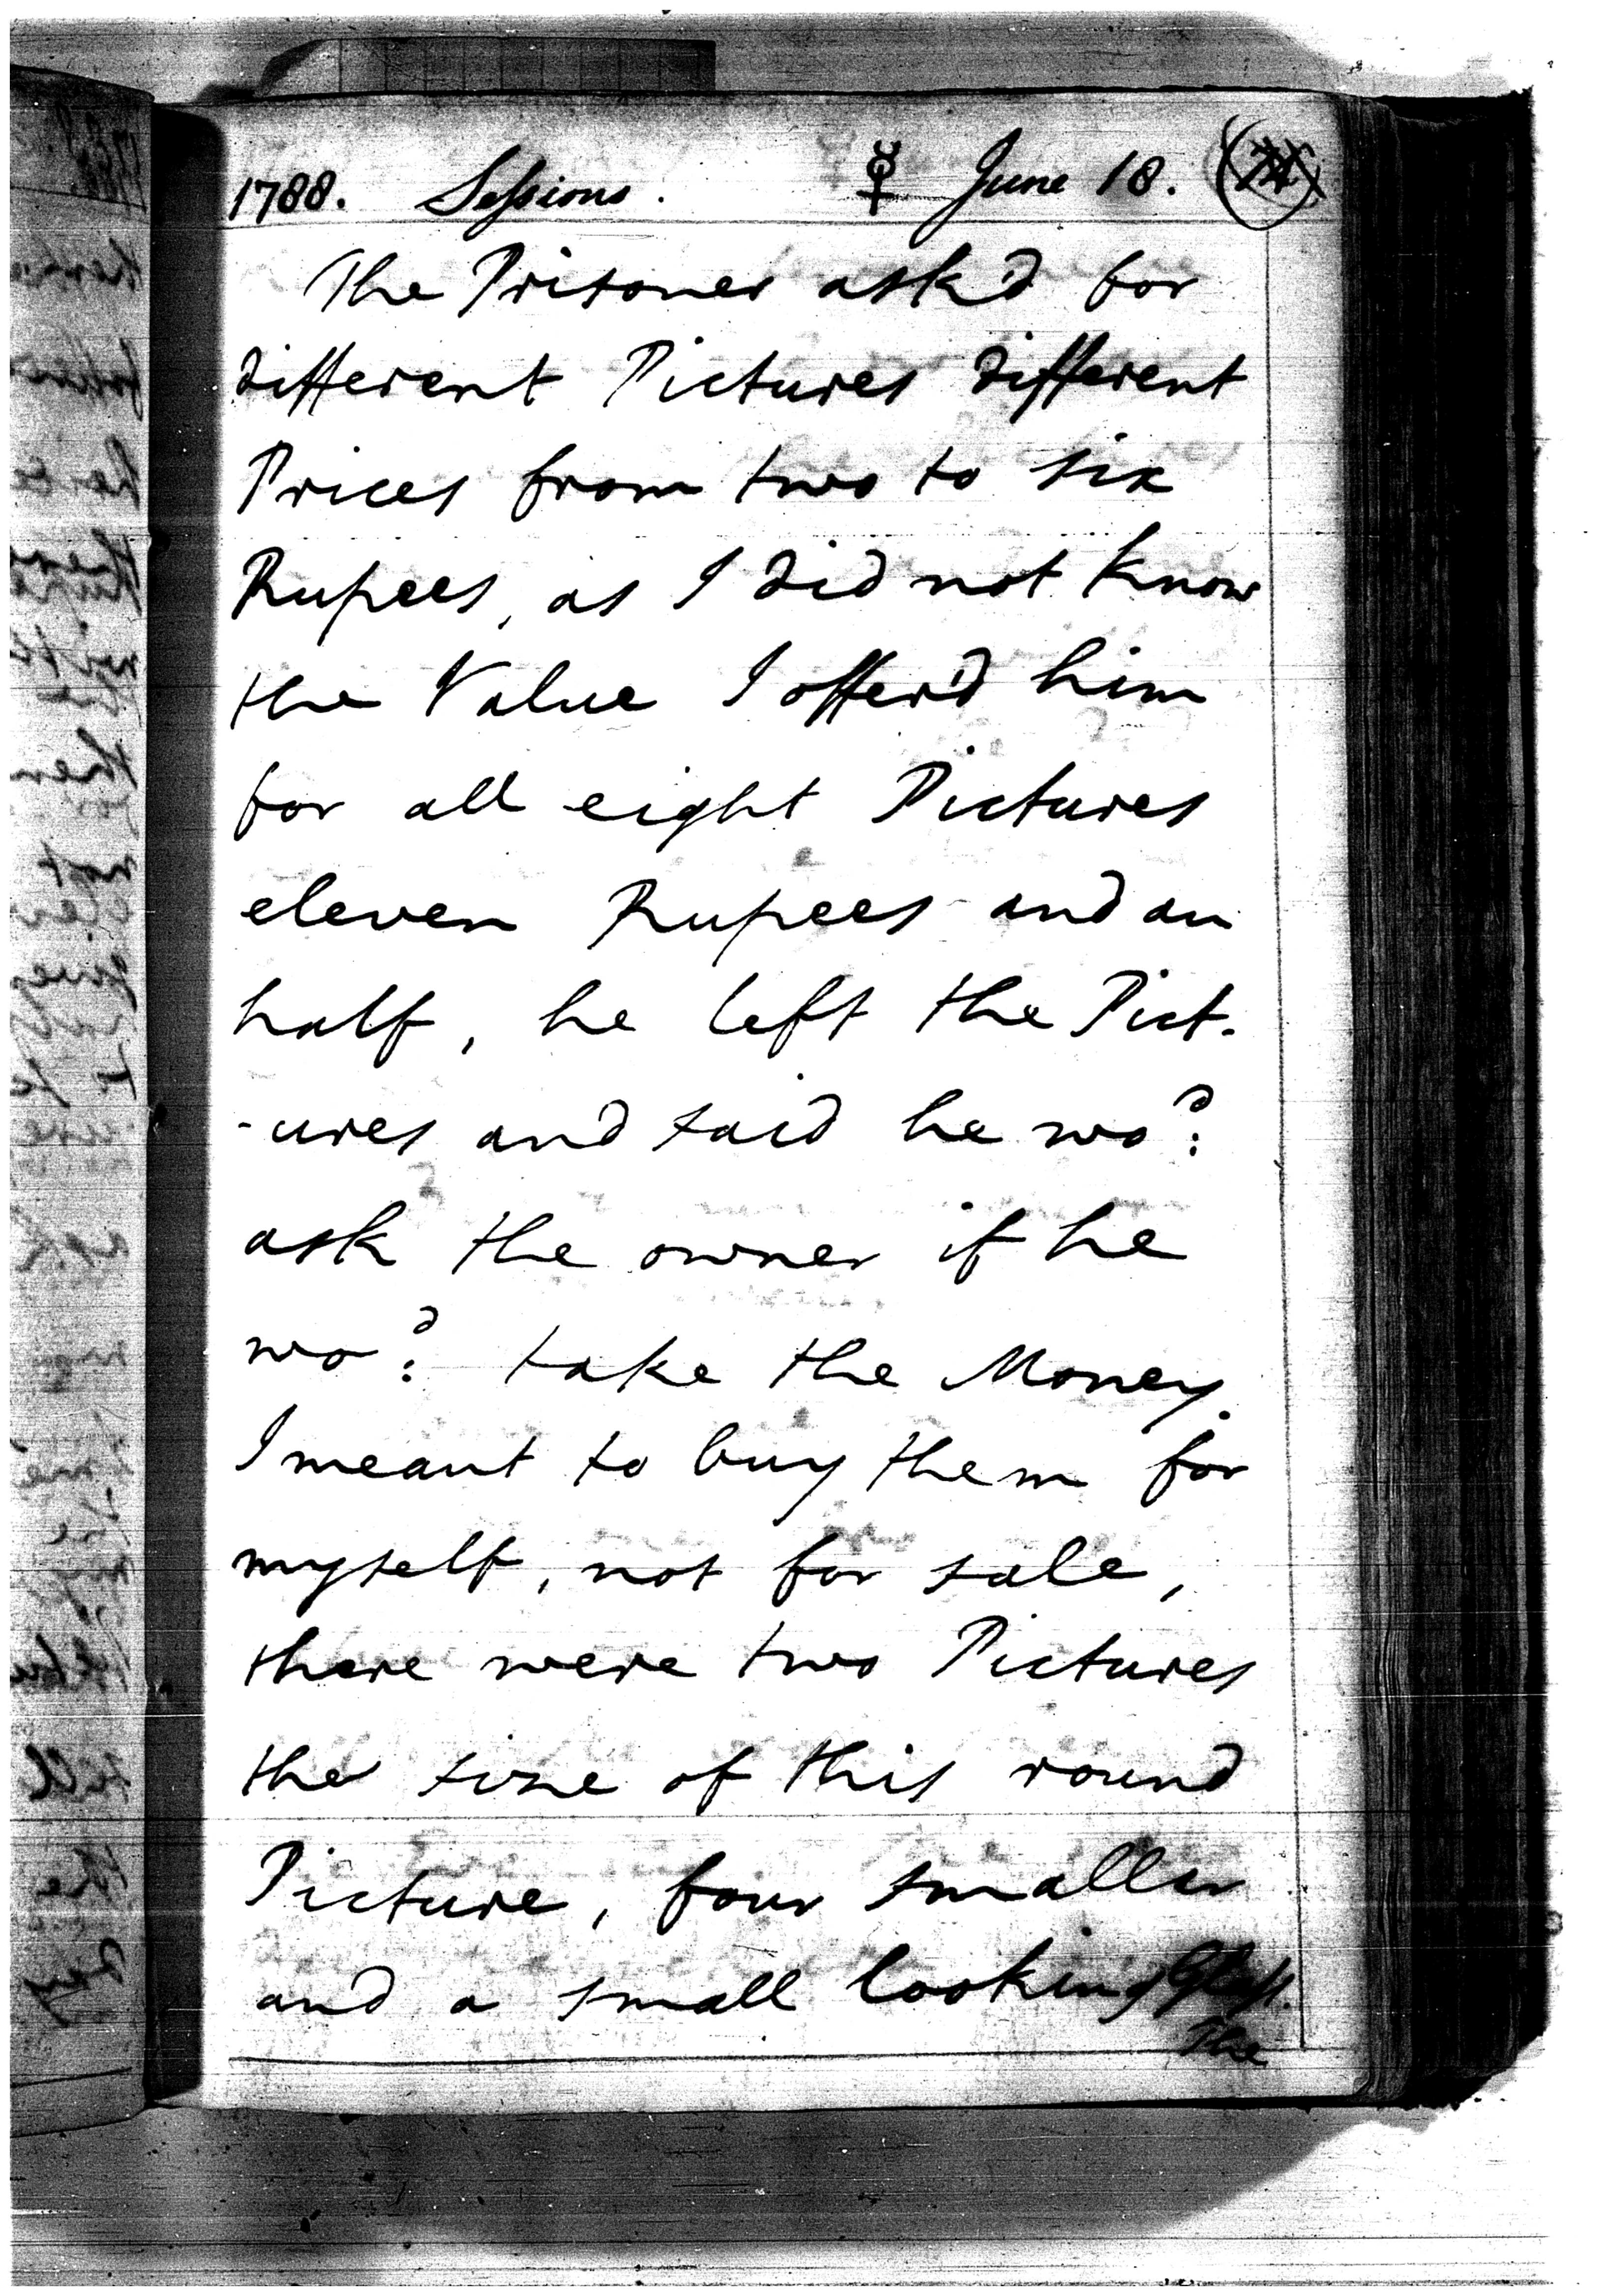 1788. Sessions. ☿ June 18.
The Prisoner ask'd for
different Pictures different
Prices from two to six
Rupees, as I did not know
the Value I offer'd him
for all eight Pictures
eleven Rupees and an
half, he left the Pict-
-ures and said he wo:d
ask the owner if he
wo:d take the Money.
I meant to buy them for
myself, not for sale,
there were two Pictures
the size of this round
Picture, four smaller
and a small looking Glass.
The